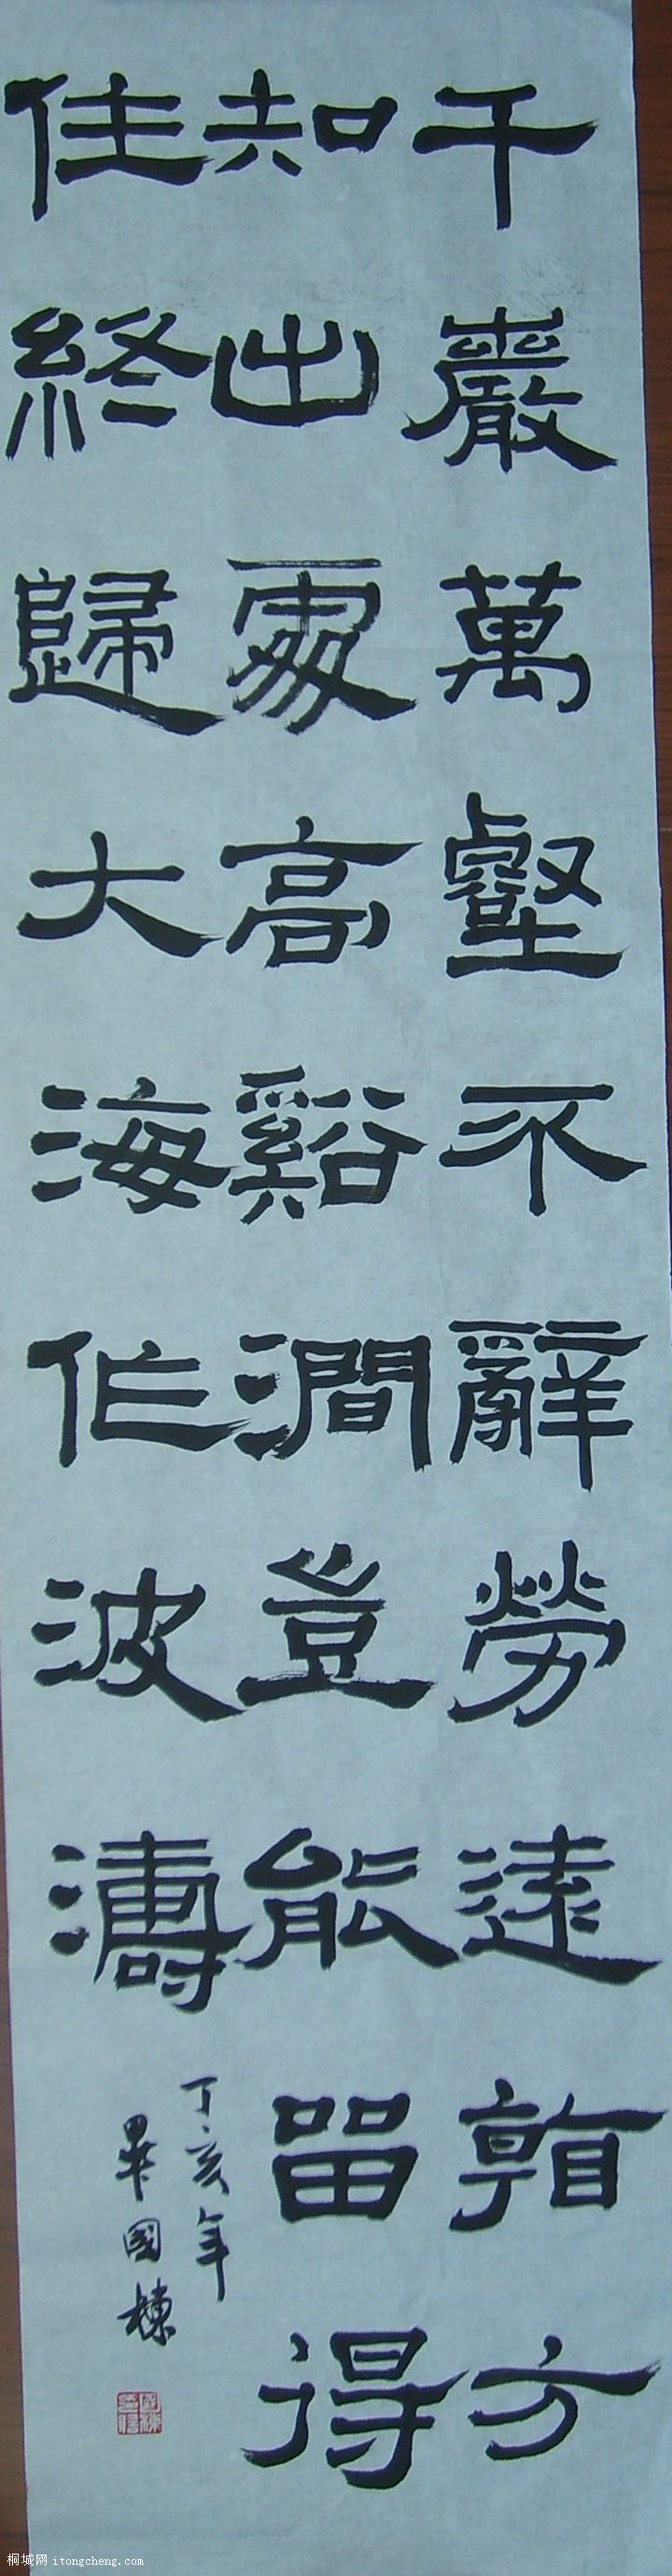 千巖萬壑不辭勞遠看方
知出處高谿澗豈能留得
住終歸大海作波濤
丁亥年
畢國棟
桐城网 itongcheng.com